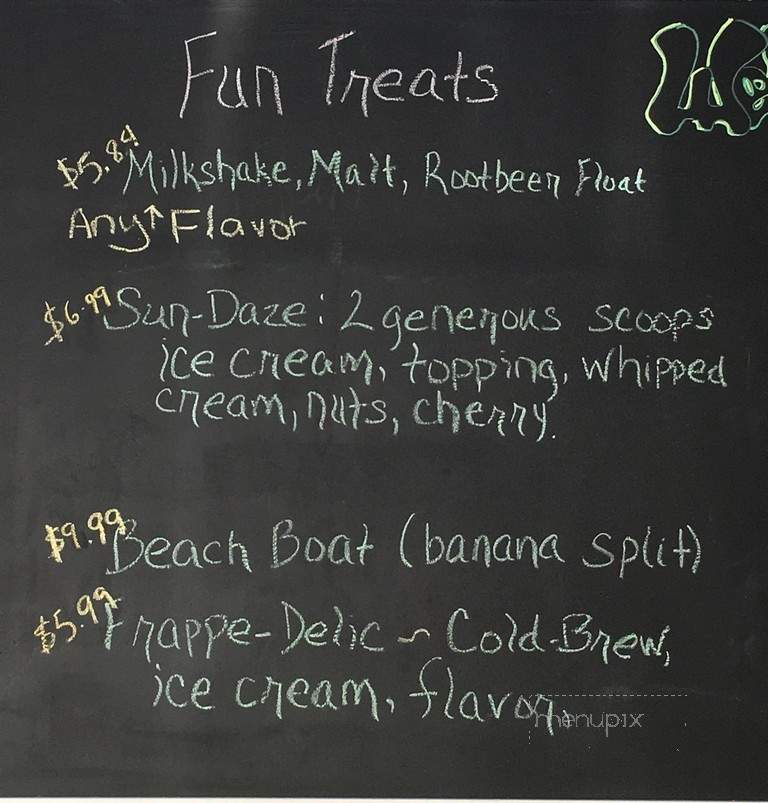 Fun Treats
$5.84 Milkshake, Malt, Rootbeer Float
Any↑ Flavor
$6.99 Sun-Daze: 2 generous scoops
ice cream, topping, whipped
cream, nuts, cherry.
$9.99 Beach Boat (banana split)
$5.99 Frappe-Delic ~ Cold-Brew,
ice cream, flavor.
menupix